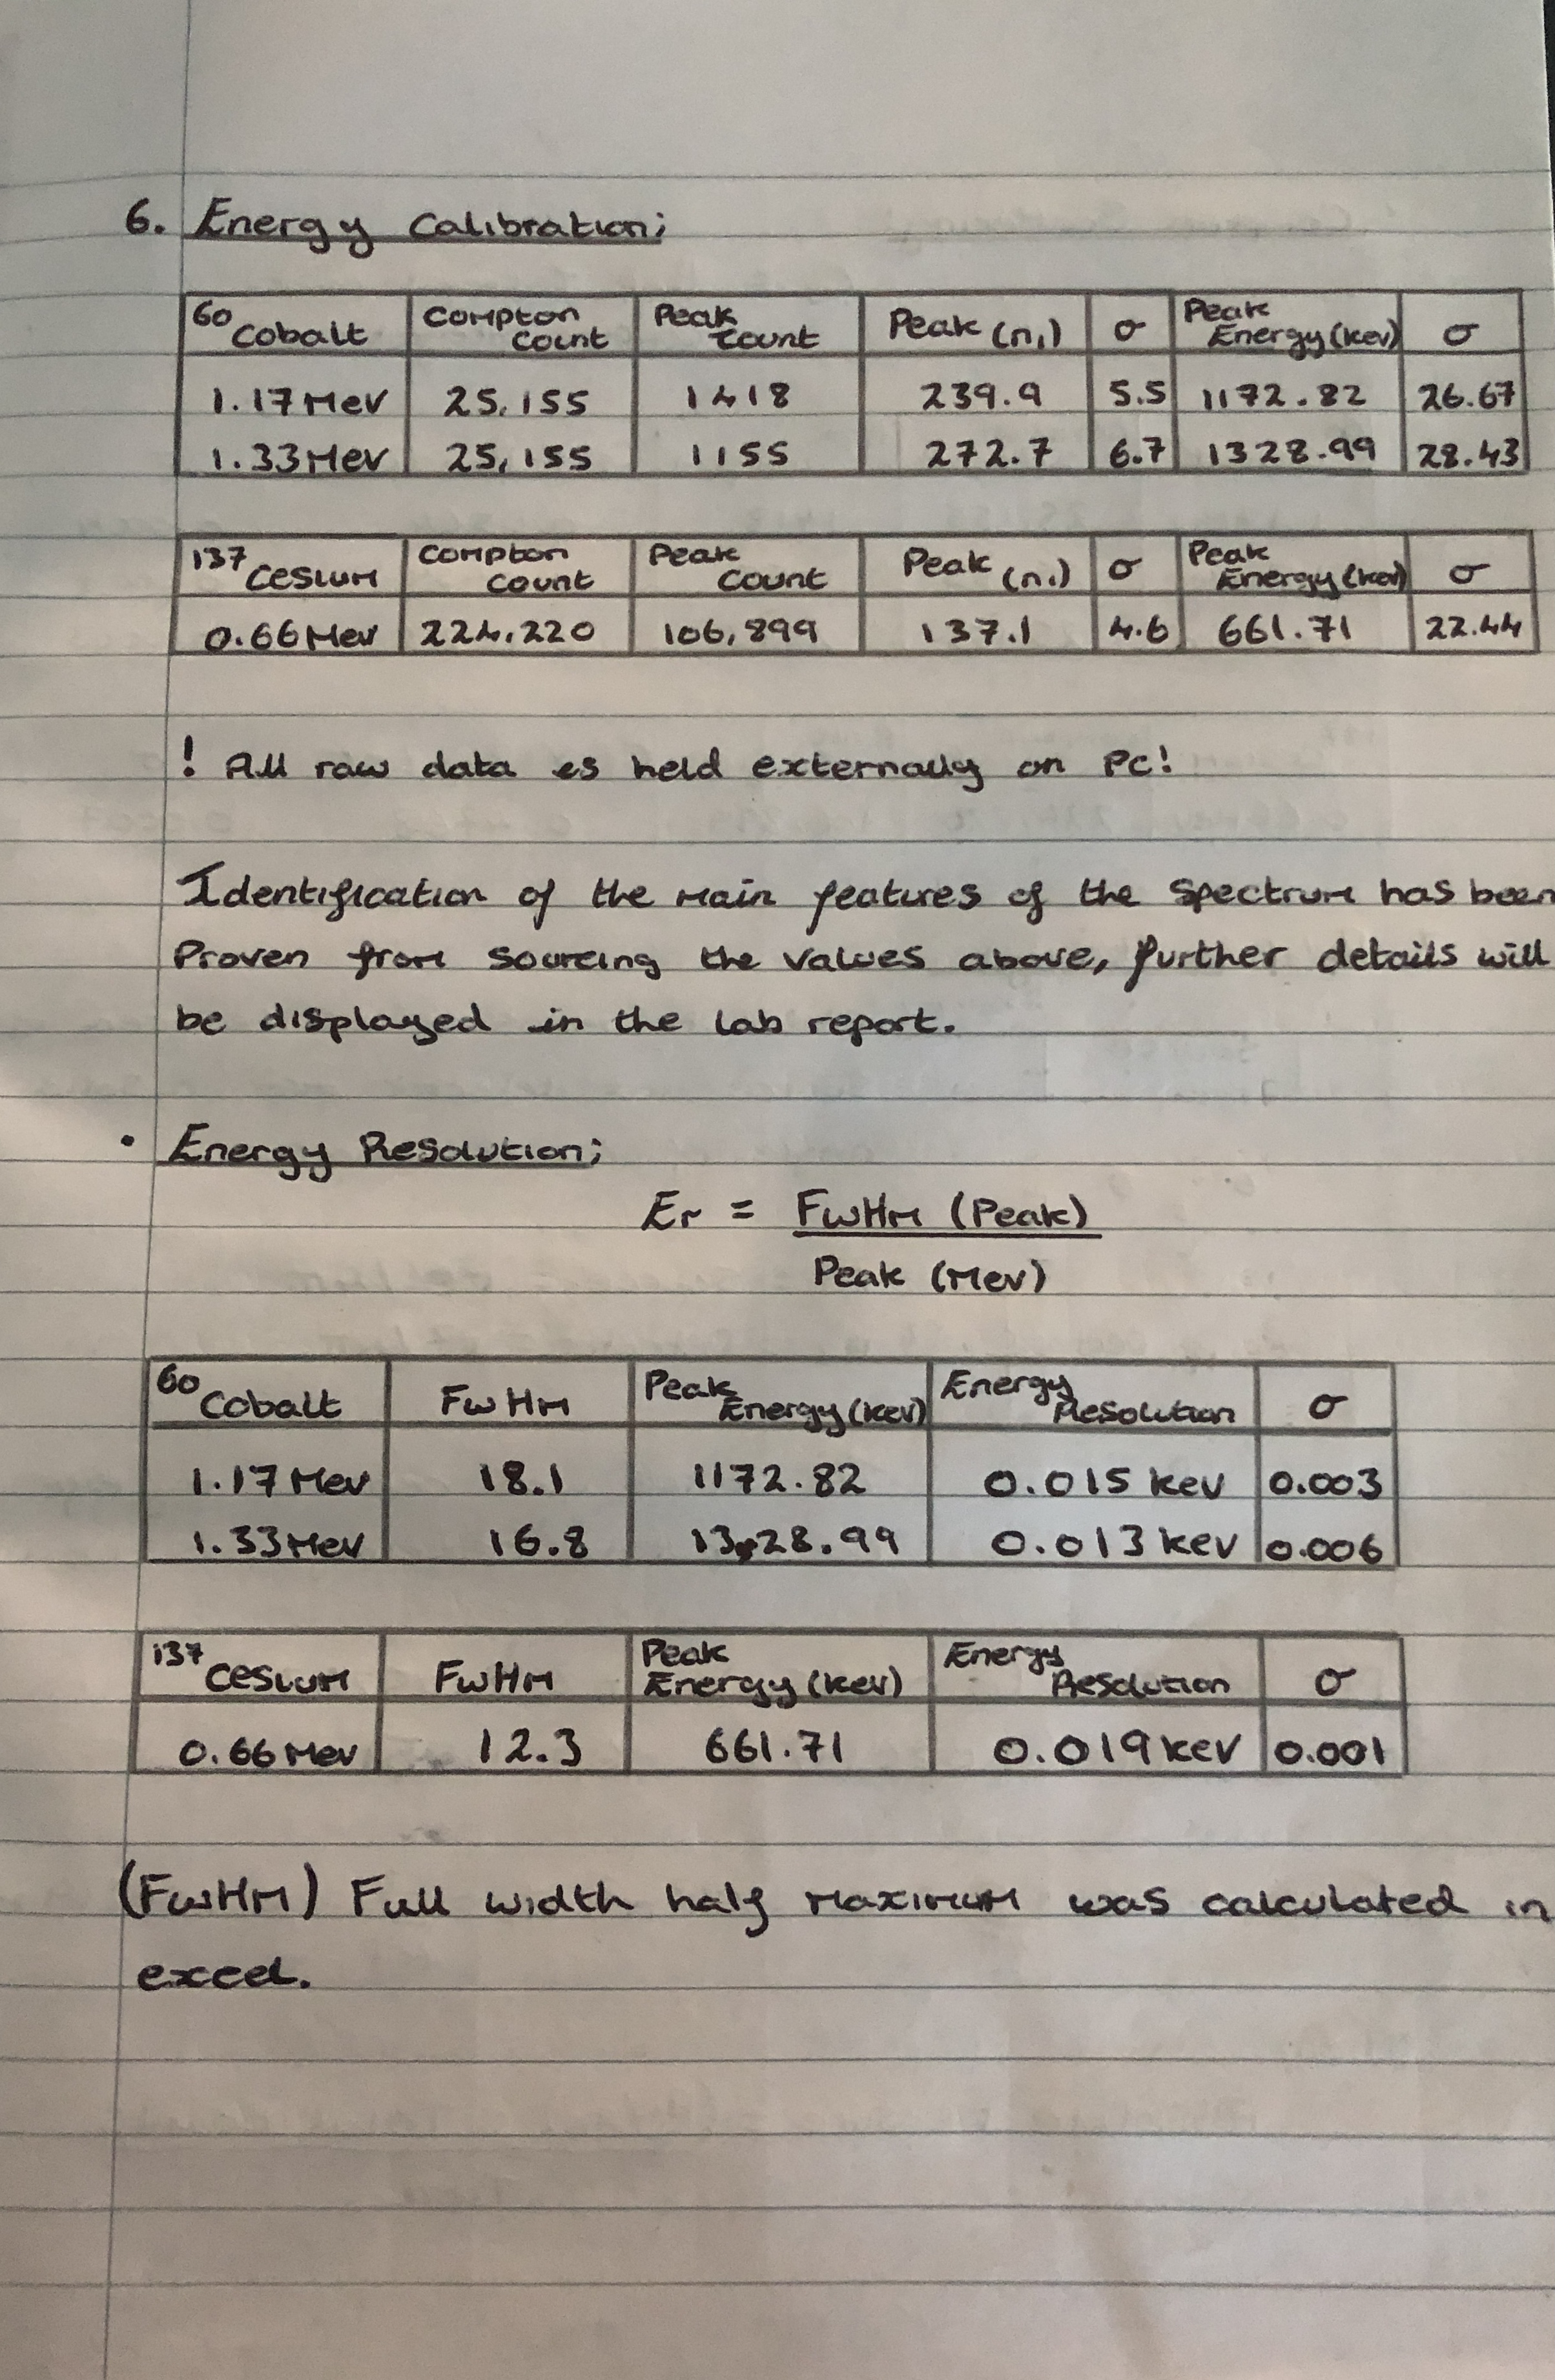 6. Energy Calibration;
60 Cobalt | Compton Count | Peak Count | Peak (n,) | σ | Peak Energy (keV) | σ
1.17 MeV | 25,155 | 1418 | 239.9 | 5.5 | 1172.82 | 26.67
1.33 MeV | 25,155 | 1155 | 272.7 | 6.7 | 1328.99 | 28.43
137 Cesium | Compton Count | Peak Count | Peak (n,) | σ | Peak Energy (keV) | σ
0.66 MeV | 224,220 | 106,899 | 137.1 | 4.6 | 661.71 | 22.44
! All raw data is held externally on PC!
Identification of the main features of the spectrum has been
Proven from sourcing the values above, further details will
be displayed in the lab report.
• Energy Resolution;
Er = FWHM (Peak)
Peak (MeV)
60 Cobalt | FWHM | Peak Energy (keV) | Energy Resolution | σ
1.17 MeV | 18.1 | 1172.82 | 0.015 keV | 0.003
1.33 MeV | 16.8 | 1328.99 | 0.013 keV | 0.006
137 Cesium | FWHM | Peak Energy (keV) | Energy Resolution | σ
0.66 MeV | 12.3 | 661.71 | 0.019 keV | 0.001
(FWHM) Full width half maximum was calculated in
excel.